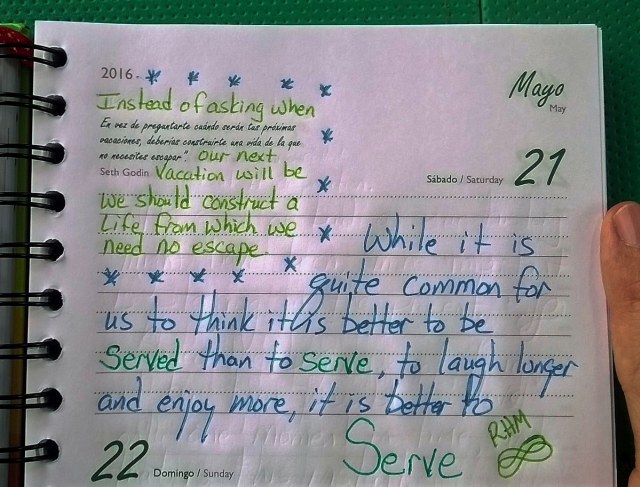 2016
Mayo
May
Instead of asking when
En vez de preguntarte cuándo serán tus próximas
vacaciones, deberías construirte una vida de la que
no necesites escapar". our next
Seth Godin Vacation will be
we should construct a
Life from which we
need no escape.
Sábado / Saturday 21
While it is
quite common for
us to think it is better to be
Served than to serve, to laugh longer
and enjoy more, it is better to
Serve
RHM
22 Domingo / Sunday